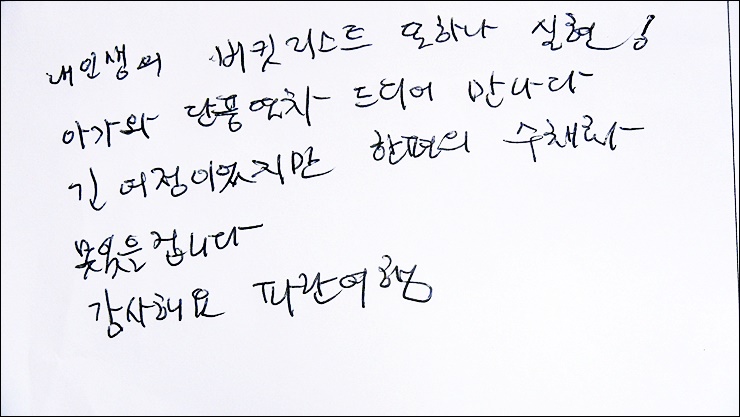 내 인생의 버킷리스트 또하나 실현!
아가와 단풍열차 드디어 만나다
긴 여정이었지만 한편의 수채화
못잊을겁니다
감사해요 파란여행